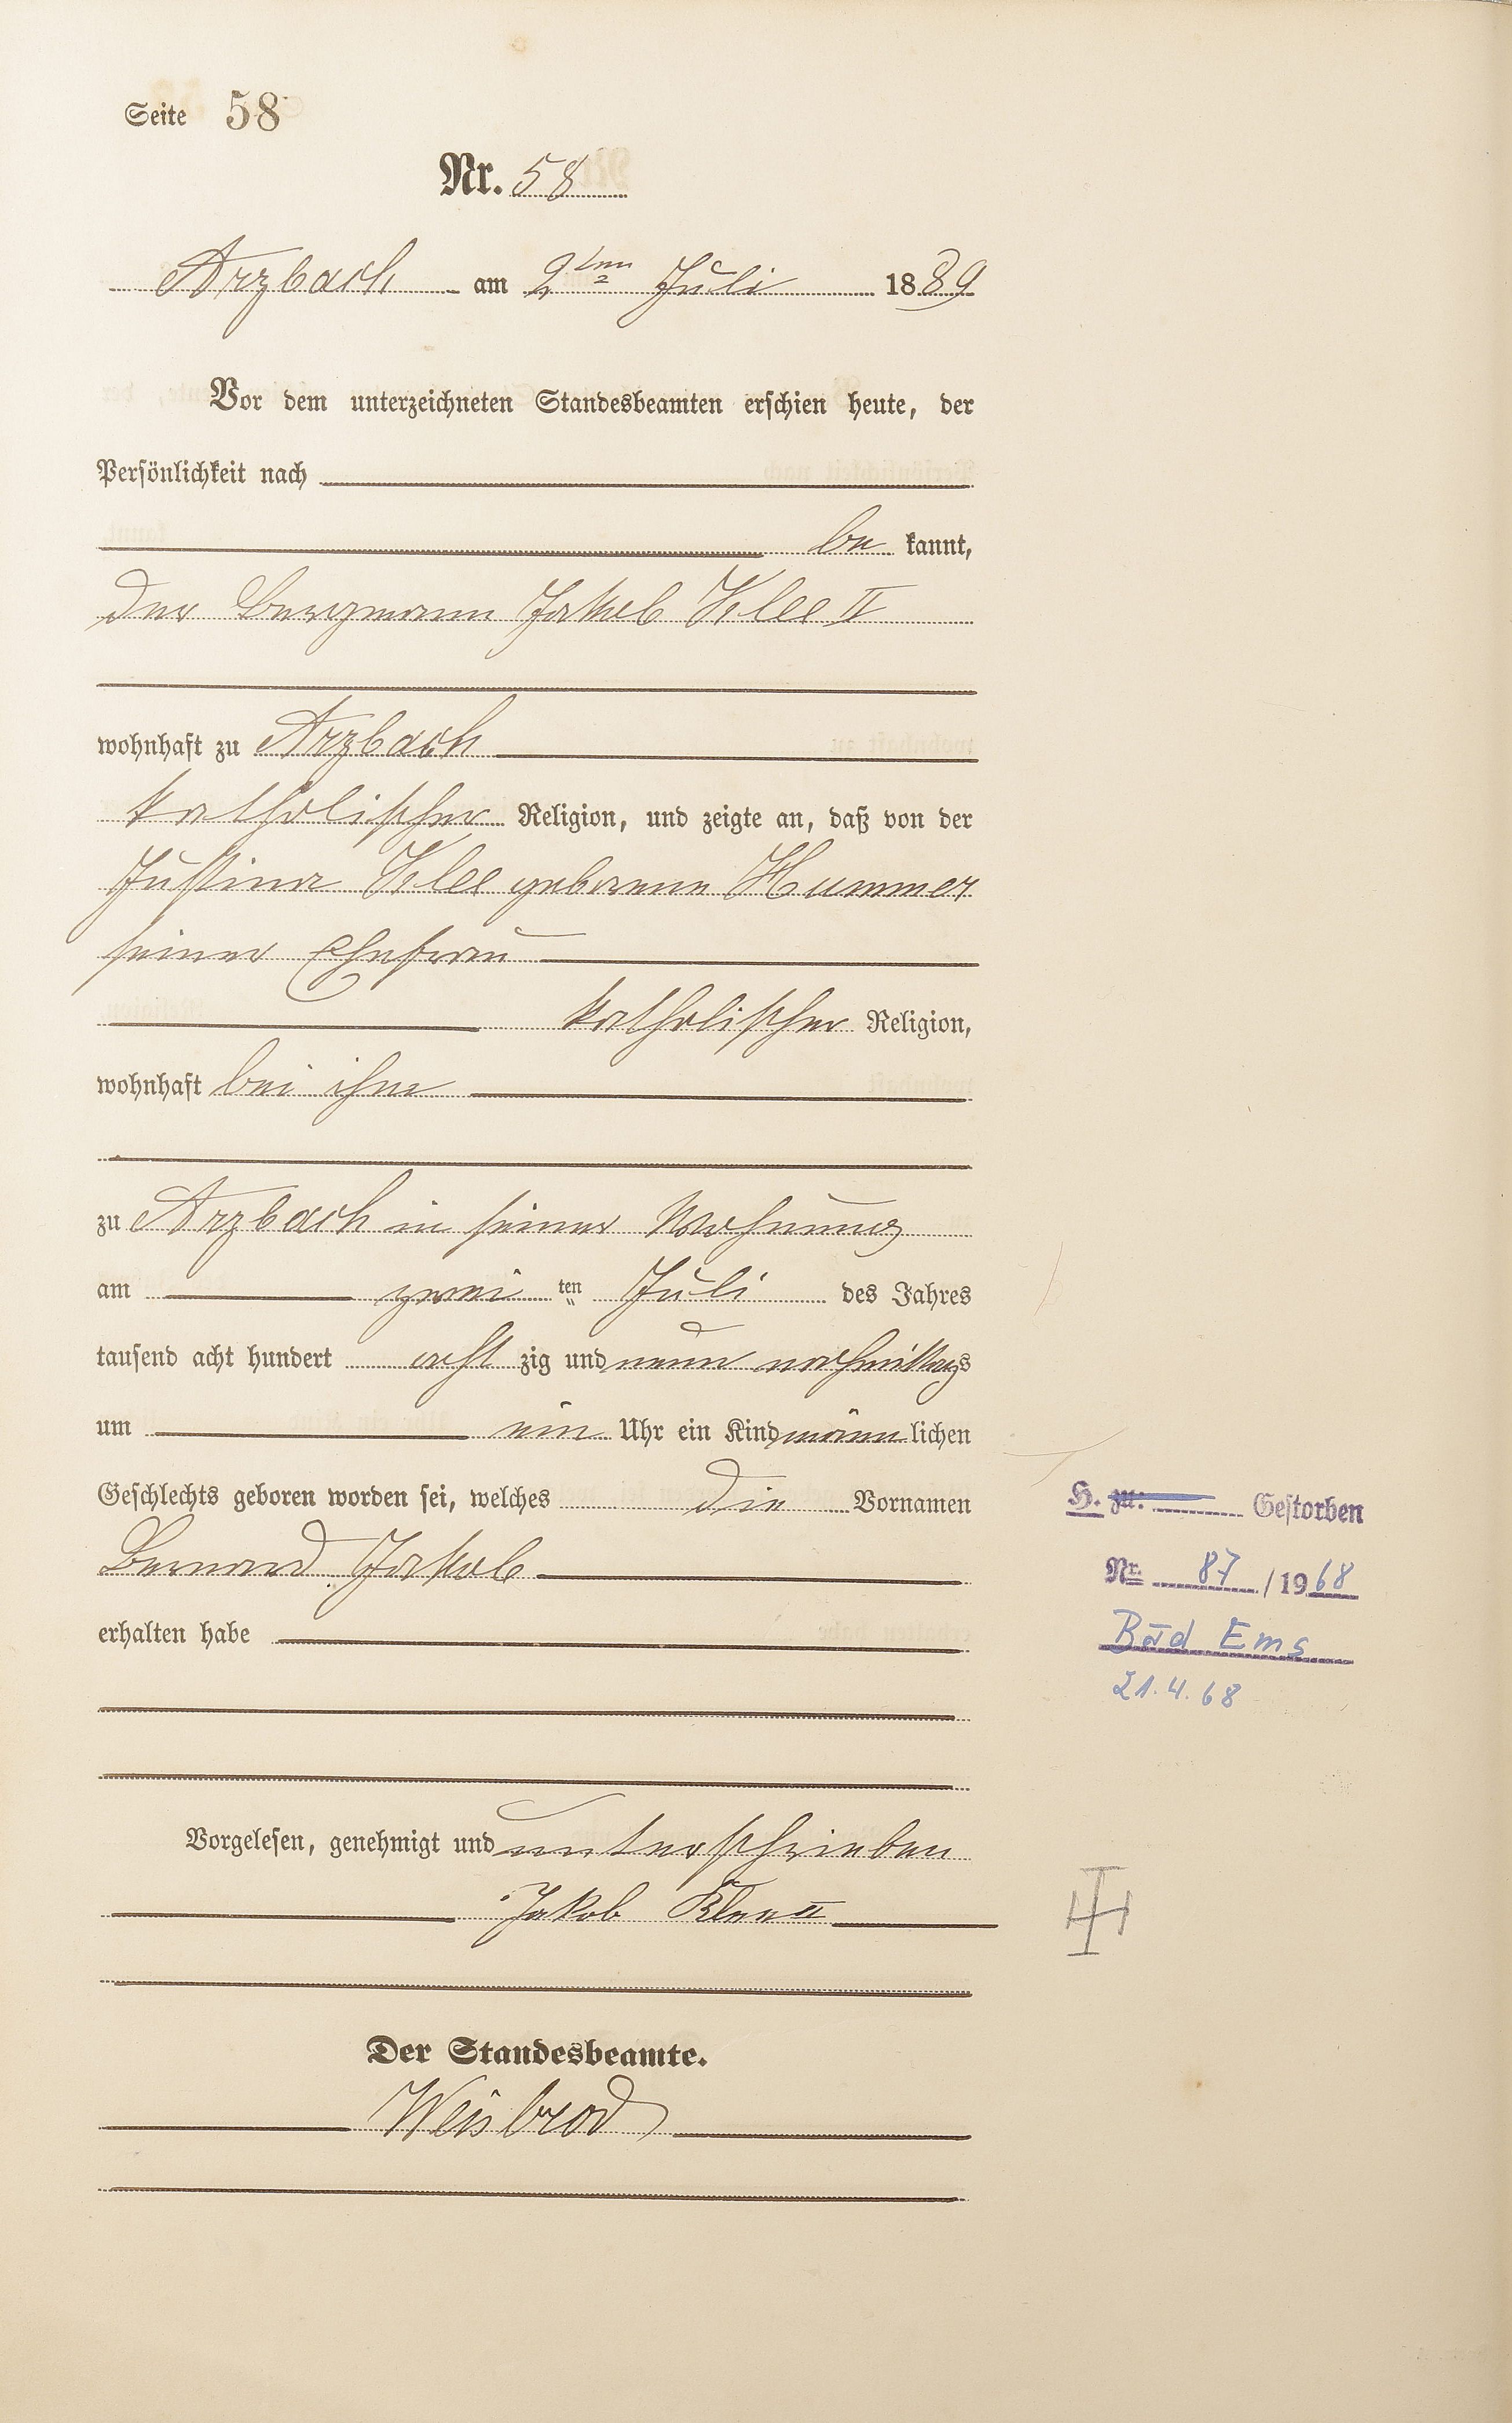 Seite 58
Nr. 58
Arzbach am 2ten Juli 1889
Vor dem unterzeichneten Standesbeamten erschien heute, der
Persönlichkeit nach
be kannt,
der Bergmann Jakob Klee II
wohnhaft zu Arzbach
katholischer Religion, und zeigte an, daß von der
Justina Klee geborene Hummer
seiner Ehefrau
katholischer Religion,
wohnhaft bei ihm
zu Arzbach in seiner Wohnung
am zwei ten Juli des Jahres
tausend acht hundert acht zig und neun nachmittags
um ein Uhr ein Kind männ lichen
Geschlechts geboren worden sei, welches die Vornamen
Bernard Jakob
erhalten habe
Vorgelesen, genehmigt und unterschrieben
Jakob Klee II
Der Standesbeamte.
Weisbrod
H. zu: Gestorben
Nr. 87 / 1968
Bad Ems
21.4.68